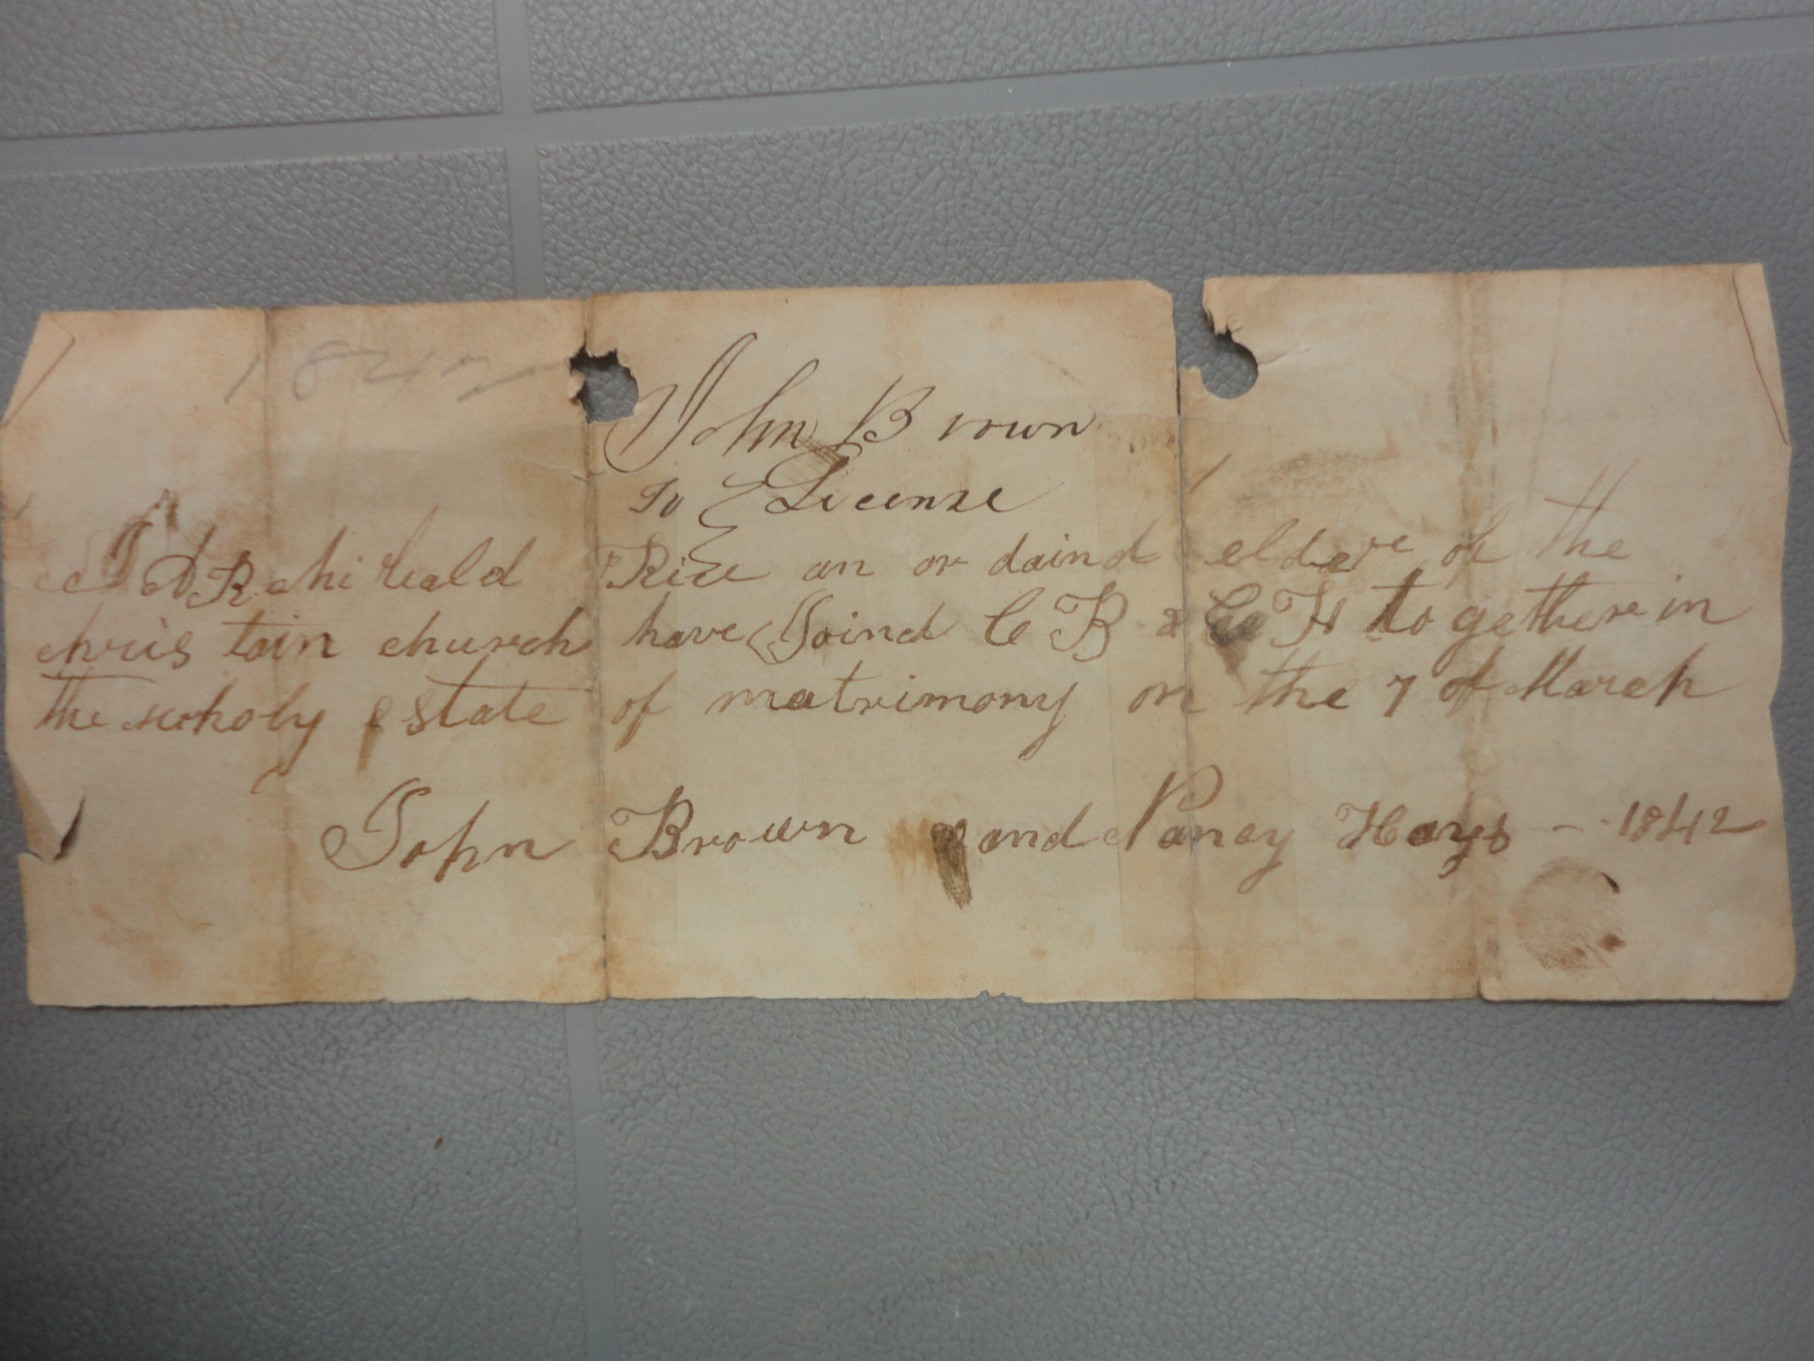 1842
John Brown
To } License
I ARchibald Rice an or daind elder of the
chris tain church have Joind C B & C H to gether in
the holy estate of matrimony on the 7 of March
John Brown and Nancy Hays - 1842